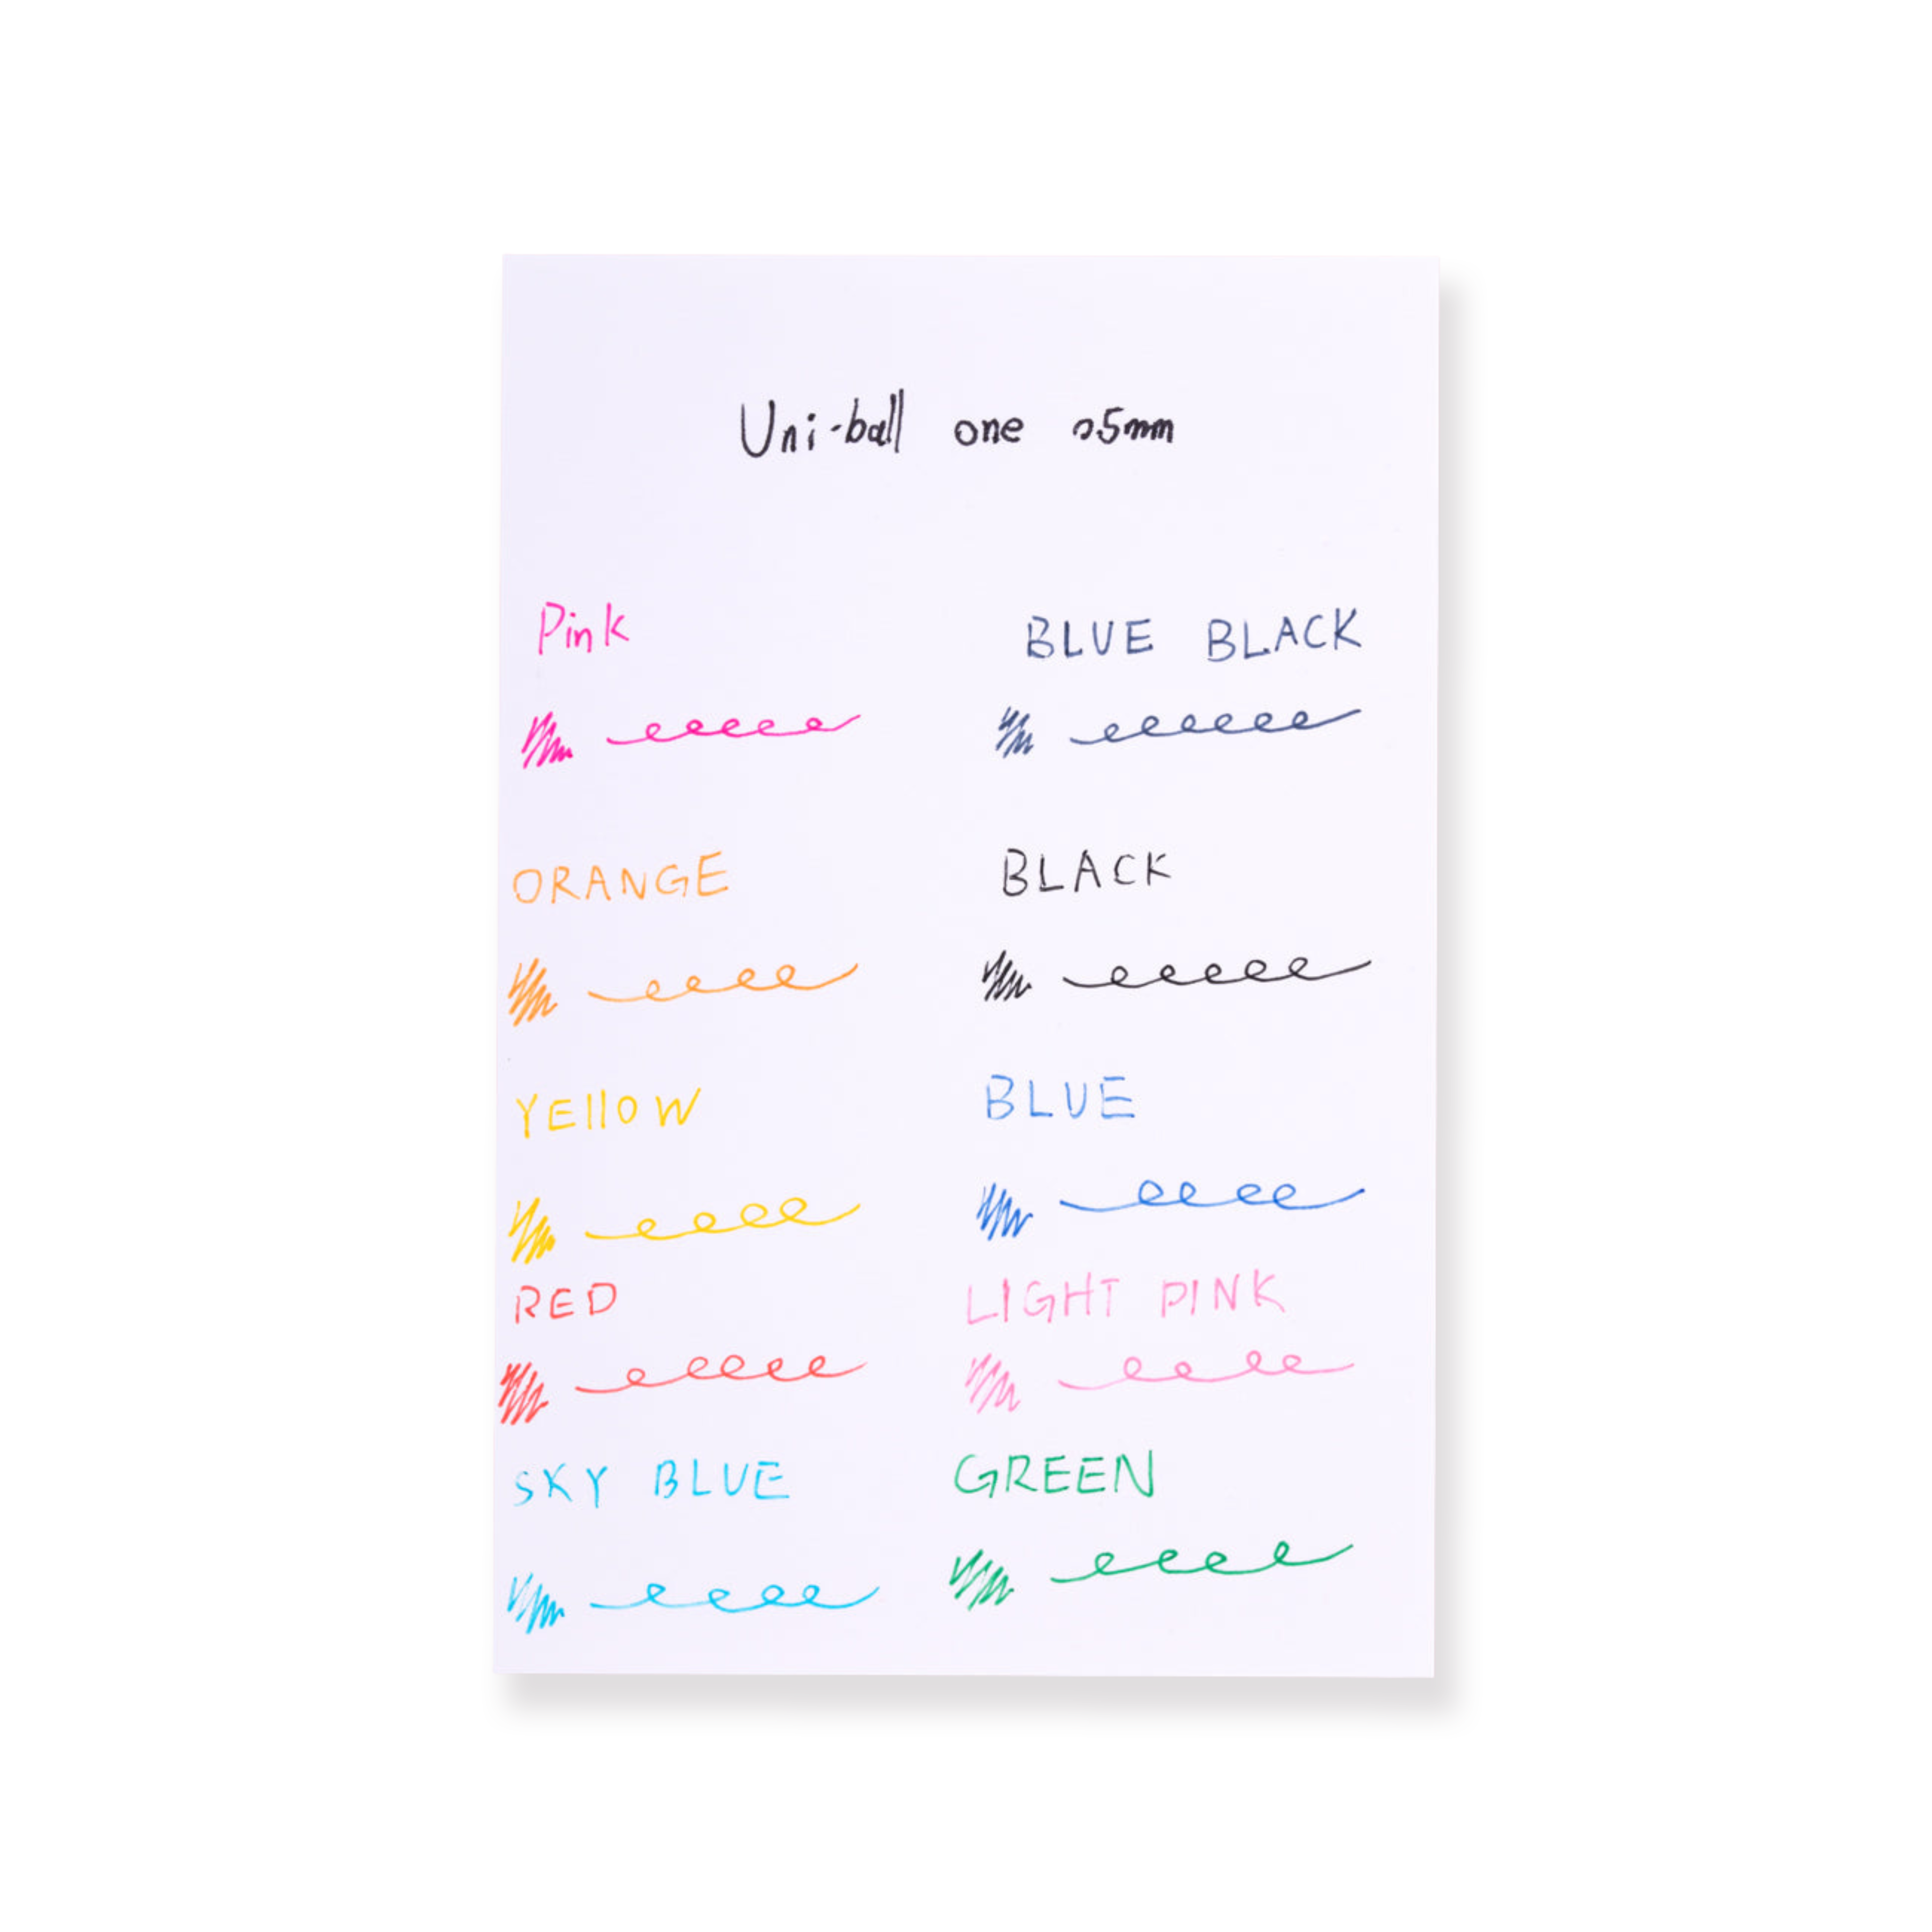 Uni-ball one 05mm
Pink
BLUE BLACK
ORANGE
BLACK
YEllOW
BLUE
RED
LIGHT PINK
SKY BLUE
GREEN